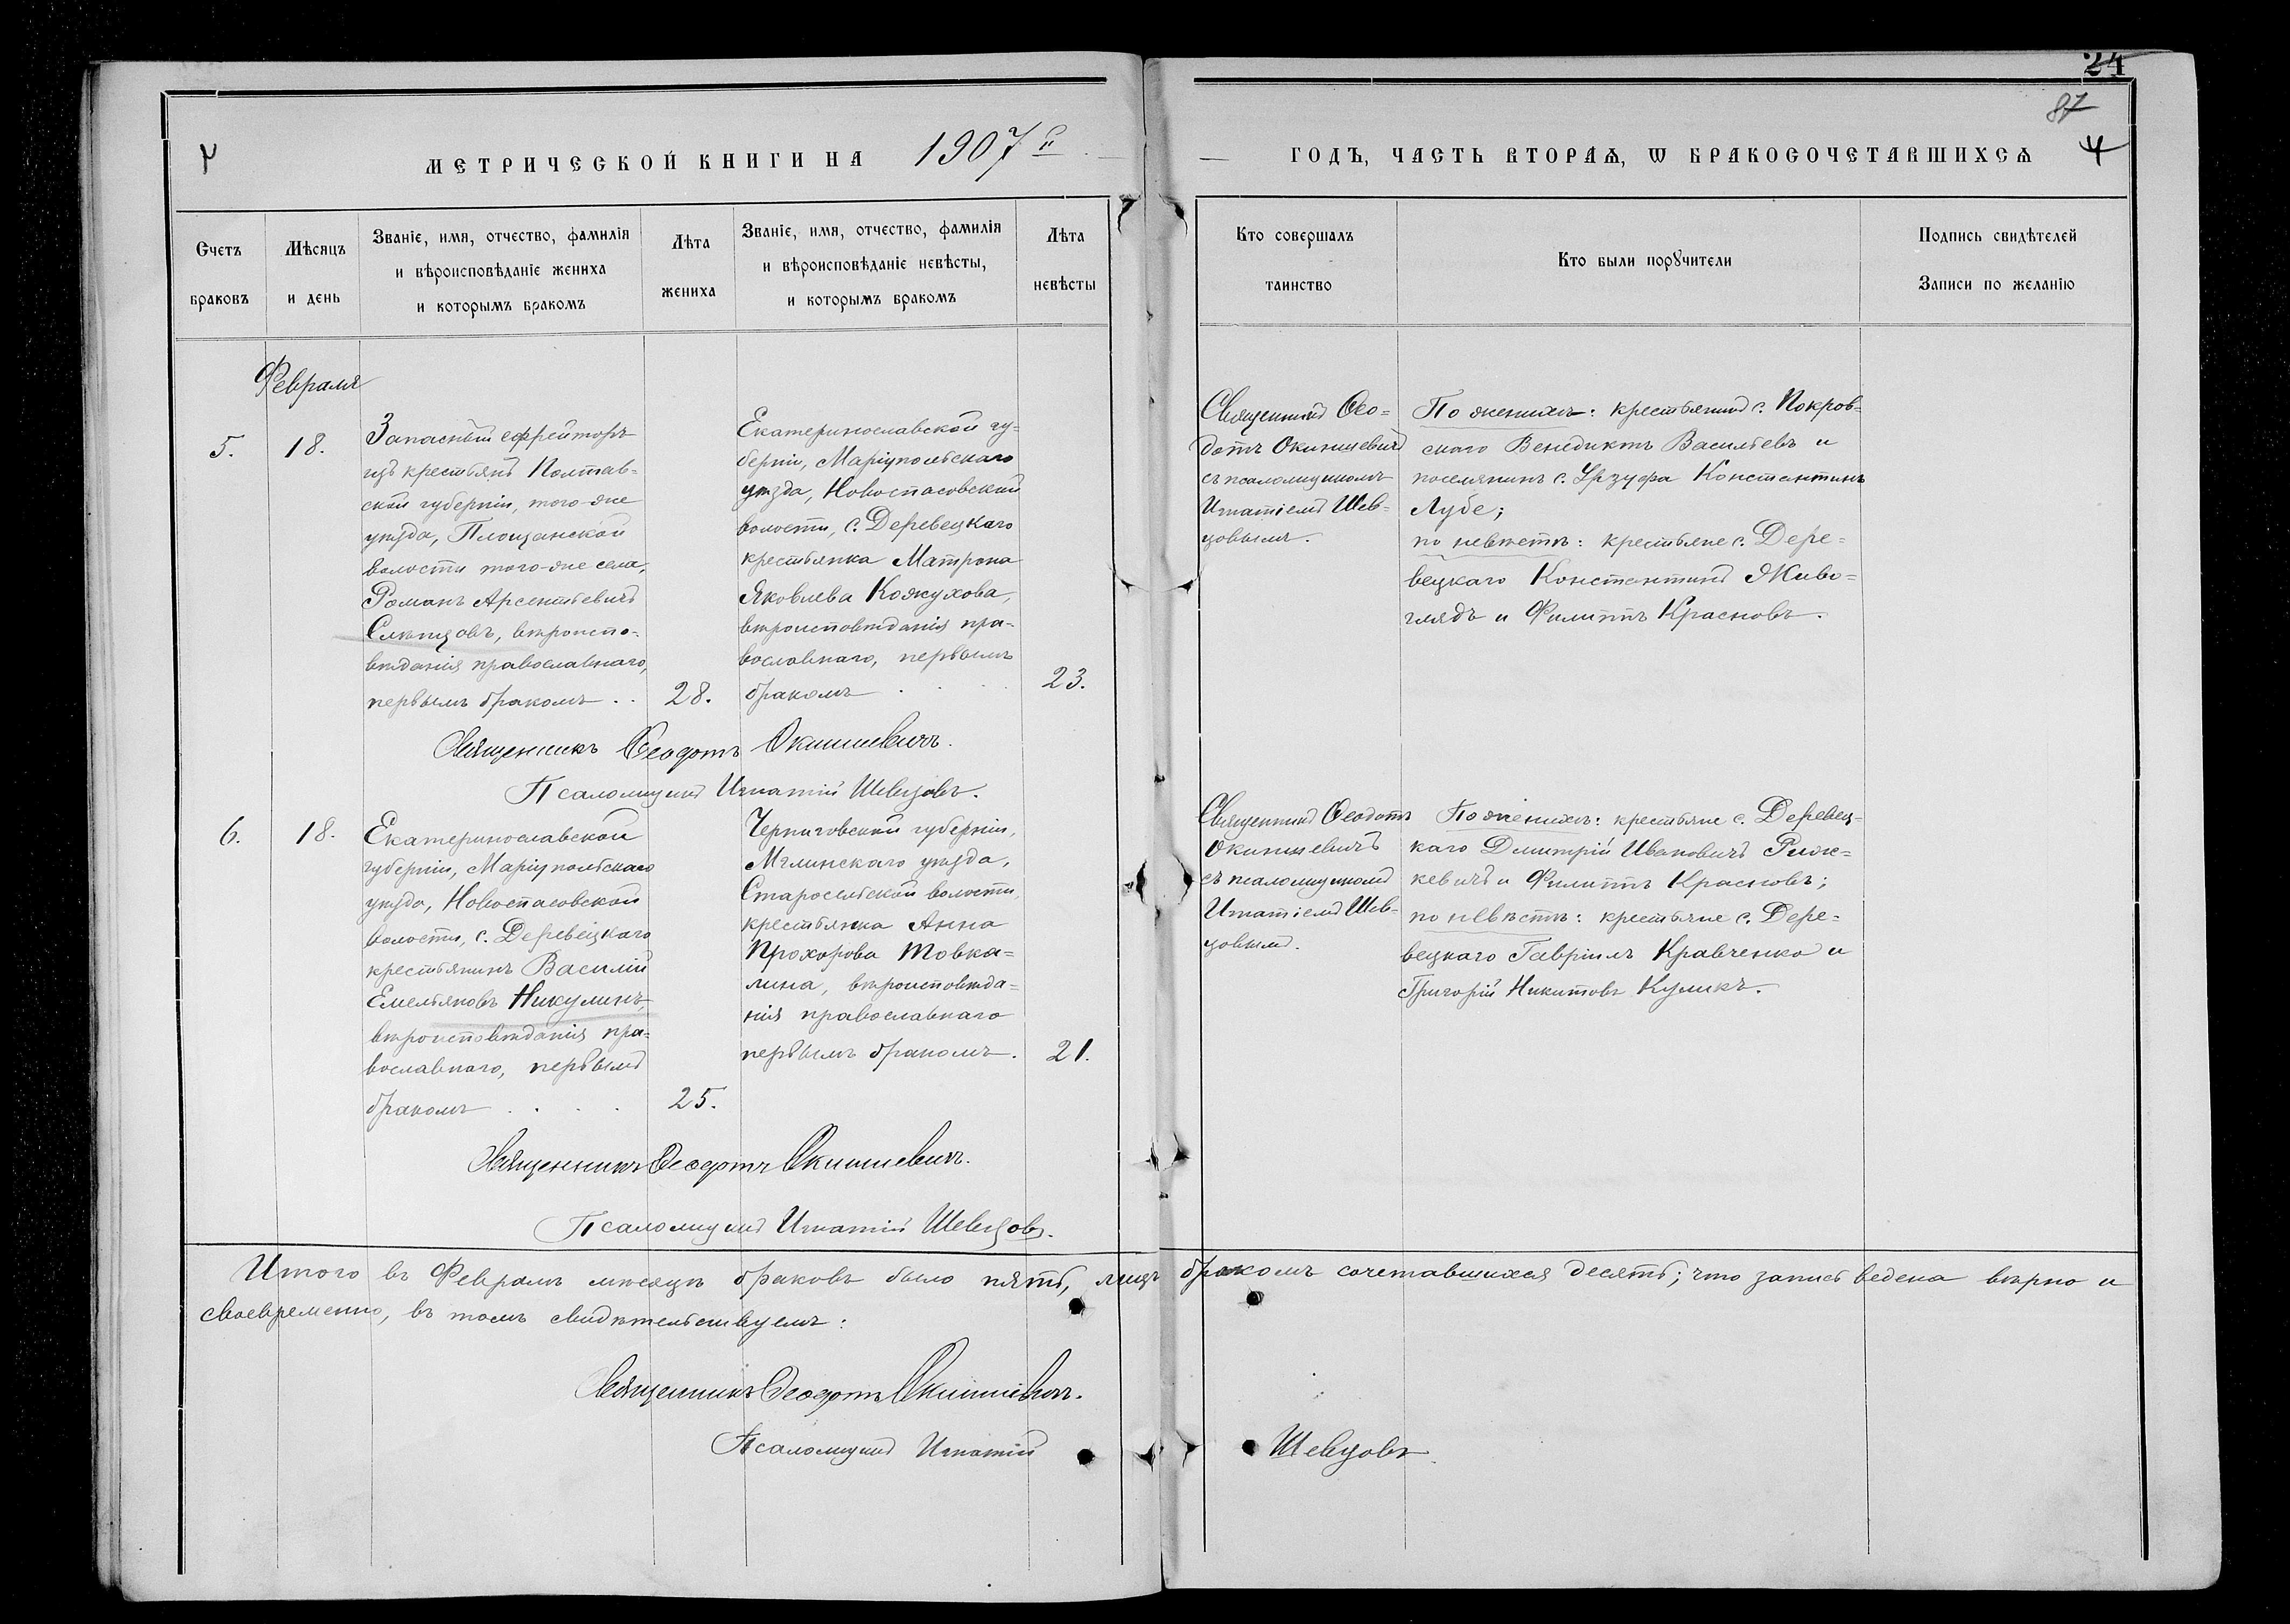 24
87
4
МЕТРИЧЕСКОЙ КНИГИ НА 1907 й
ГОДЪ, ЧАСТЬ ВТОРАѦ, Ѡ БРАКОСОЧЕТАВШИХСѦ
4
Счетъ
браковъ
Мѣсяцъ
и день
Званіе, имя, отчество, фамилія
и вѣроисповѣданіе жениха
и которымъ бракомъ
Лѣта
жениха
Званіе, имя, отчество, фамилія
и вѣроисповѣданіе невѣсты,
и которымъ бракомъ
Лѣта
невѣсты
Кто совершалъ
таинство
Кто были порꙋчители
Подпись свидѣтелей
Записи по желанію
Февраля
5.
18.
Запасный ефрейторъ
изъ крестьянъ Полтав-
ской губерніи, того-же
уѣзда, Площанской
волости того-же села,
Романъ Арсентьевичъ
Слѣпцовъ, вѣроиспо-
вѣданія православнаго,
первымъ бракомъ . .
28.
Екатеринославской гу-
берніи, Маріупольскаго
уѣзда, Новоспасовской
волости, с. Деревецкаго
крестьянка Матрона
Яковлева Кожухова,
вѣроисповѣданія пра-
вославнаго, первымъ
бракомъ . . .
23.
Священникъ Ѳео-
дотъ Окиншевичъ
съ псаломщикомъ
Игнатіемъ Шев-
цовымъ.
По женихѣ: крестьянинъ с. Покров-
скаго Венедиктъ Васильевъ и
поселянинъ с. Урзуфа Константинъ
Лубе;
по невѣстѣ: крестьяне с. Дере-
вецкаго Константинъ Живо-
глядъ и Филиппъ Красновъ.
Священникъ Ѳеодотъ Окиншевичъ.
Псаломщикъ Игнатій Шевцовъ.
6.
18.
Екатеринославской
губерніи, Маріупольскаго
уѣзда, Новоспасовской
волости, с. Деревецкаго
крестьянинъ Василій
Емельяновъ Никулинъ,
вѣроисповѣданія пра-
вославнаго, первымъ
бракомъ . . . .
25.
Черниговской губерніи,
Мглинскаго уѣзда,
Старосельской волости,
крестьянка Анна
Прохорова Товка-
лина, вѣроисповѣда-
нія православнаго
первымъ бракомъ.
21.
Священникъ Ѳеодотъ
Окиншевичъ
съ псаломщикомъ
Игнатіемъ Шев-
цовымъ.
По женихѣ: крестьяне с. Деревец-
каго Димитрій Ивановичъ
и Филиппъ Красновъ;
по невѣстѣ: крестьяне с. Дере-
вецкаго Гавріилъ Кравченко и
Григорій Никитовъ Куликъ.
Священникъ Ѳеодотъ Окиншевичъ.
Псаломщикъ Игнатій Шевцовъ.
Итого въ Февралѣ мѣсяцѣ браковъ было пять, лицъ бракомъ сочетавшихся десять; что запись ведена вѣрно и
своевременно, въ томъ свидѣтельствуемъ:
Священникъ Ѳеодотъ Окиншевичъ.
Псаломщикъ Игнатій Шевцовъ